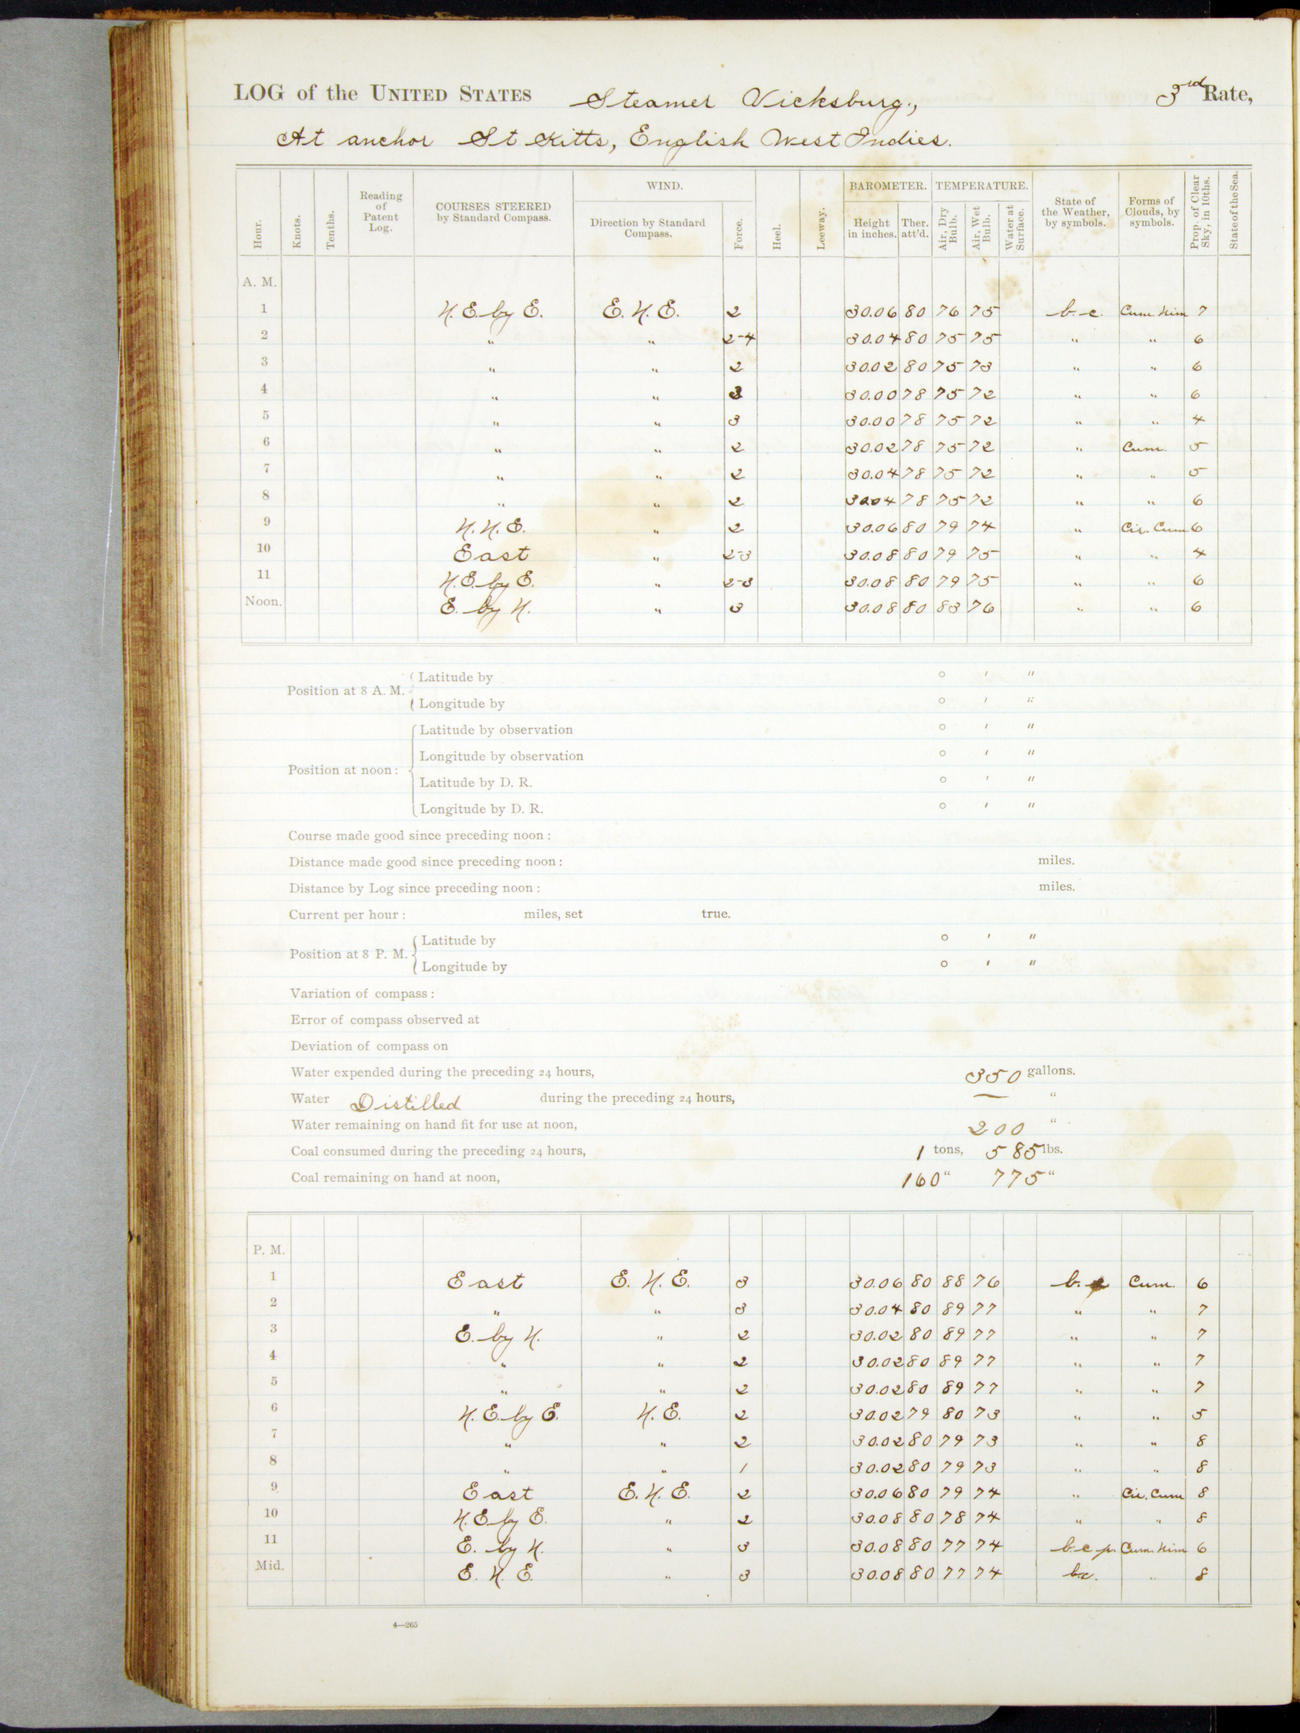 LOG of the UNITED STATES Steamer Vicksburg, 3rd Rate,
At anchor St Kitts, English West Indies.
Hour. Knots. Tenths. Reading of Patent Log. COURSES STEERED by Standard Compass. WIND. Direction by Standard Compass. Force. Heel. Leeway. BAROMETER. Height in inches. Ther. att'd. TEMPERATURE. Air, Dry Bulb. Air, Wet Bulb. Water at Surface. State of the Weather, by symbols. Forms of Clouds, by symbols. Prop. of Clear Sky, in 10ths. State of the Sea.
A. M.
1 N.E. by E. E.N.E. 2 30.06 80 76 75 b.c. Cum. Nim 7
2 " " 2-4 30.04 80 75 75 " " 6
3 " " 2 30.02 80 75 73 " " 6
4 " " 3 30.00 78 75 72 " " 6
5 " " 3 30.00 78 75 72 " " 4
6 " " 2 30.02 78 75 72 " Cum. 5
7 " " 2 30.04 78 75 72 " " 5
8 " " 2 30.04 78 75 72 " " 6
9 N.N.E. " 2 30.06 80 79 74 " Cir. Cum 6
10 East " 2-3 30.08 80 79 75 " " 4
11 N.E. by E. " 2-3 30.08 80 79 75 " " 6
Noon. E. by N. " 3 30.08 80 83 76 " " 6
Position at 8 A. M. Latitude by ° ′ ″
Longitude by ° ′ ″
Position at noon: Latitude by observation ° ′ ″
Longitude by observation ° ′ ″
Latitude by D. R. ° ′ ″
Longitude by D. R. ° ′ ″
Course made good since preceding noon:
Distance made good since preceding noon: miles.
Distance by Log since preceding noon: miles.
Current per hour: miles, set true.
Position at 8 P. M. Latitude by ° ′ ″
Longitude by ° ′ ″
Variation of compass:
Error of compass observed at
Deviation of compass on
Water expended during the preceding 24 hours, 350 gallons.
Water Distilled during the preceding 24 hours, — "
Water remaining on hand fit for use at noon, 200 "
Coal consumed during the preceding 24 hours, 1 tons, 585 lbs.
Coal remaining on hand at noon, 160 " 775 "
P. M.
1 East E.N.E. 3 30.06 80 88 76 b. Cum. 6
2 " " 3 30.04 80 89 77 " " 7
3 E. by N. " 2 30.02 80 89 77 " " 7
4 " " 2 30.02 80 89 77 " " 7
5 " " 2 30.02 80 89 77 " " 7
6 N.E. by E. N.E. 2 30.02 79 80 73 " " 5
7 " " 2 30.02 80 79 73 " " 8
8 " " 1 30.02 80 79 73 " " 8
9 East E.N.E. 2 30.06 80 79 74 " Cir. Cum 8
10 N.E. by E. " 2 30.08 80 78 74 " " 8
11 E. by N. " 3 30.08 80 77 74 b.c.p. Cum. Nim 6
Mid. E.N.E. " 3 30.08 80 77 74 b.c. " 8
4—265